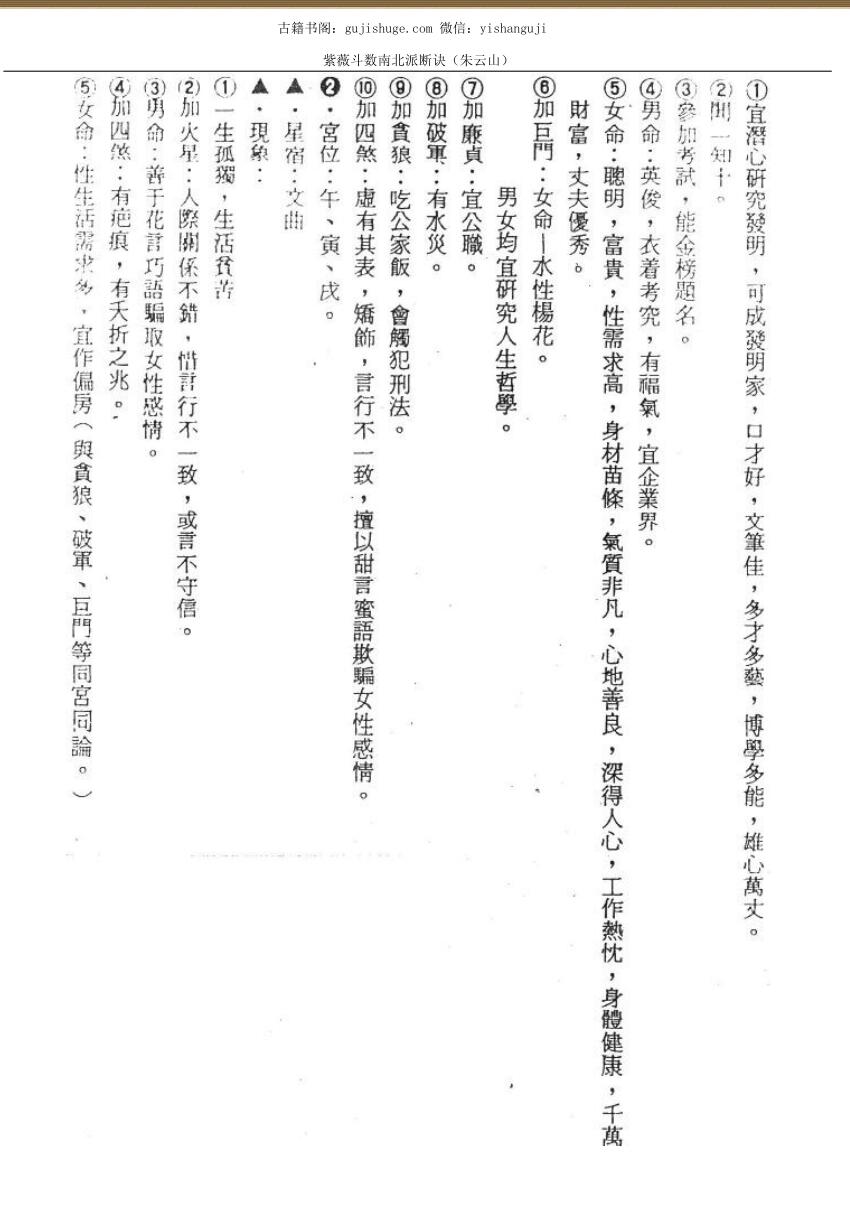 古籍书阁：gujishuge.com 微信：yishanguji
紫薇斗数南北派断诀（朱云山）
①宜潛心研究發明，可成發明家，口才好，文筆佳，多才多藝，博學多能，雄心萬丈。
②聞一知十。
③參加考試，能金榜題名。
④男命：英俊，衣着考究，有福氣，宜企業界。
⑤女命：聰明，富貴，性需求高，身材苗條，氣質非凡，心地善良，深得人心，工作熱忱，身體健康，千萬
財富，丈夫優秀。
⑥加巨門：女命－水性楊花。
男女均宜研究人生哲學。
⑦加廉貞：宜公職。
⑧加破軍：有水災。
⑨加貪狼：吃公家飯，會觸犯刑法。
⑩加四煞：虛有其表，矯飾，言行不一致，擅以甜言蜜語欺騙女性感情。
❷·宮位：午、寅、戌。
▲·星宿：文曲
▲·現象：
①一生孤獨，生活貧苦
②加火星：人際關係不錯，惜言行不一致，或言不守信。
③男命：善于花言巧語騙取女性感情。
④加四煞：有疤痕，有夭折之兆。
⑤女命：性生活需求多，宜作偏房（與貪狼、破軍、巨門等同宮同論。）